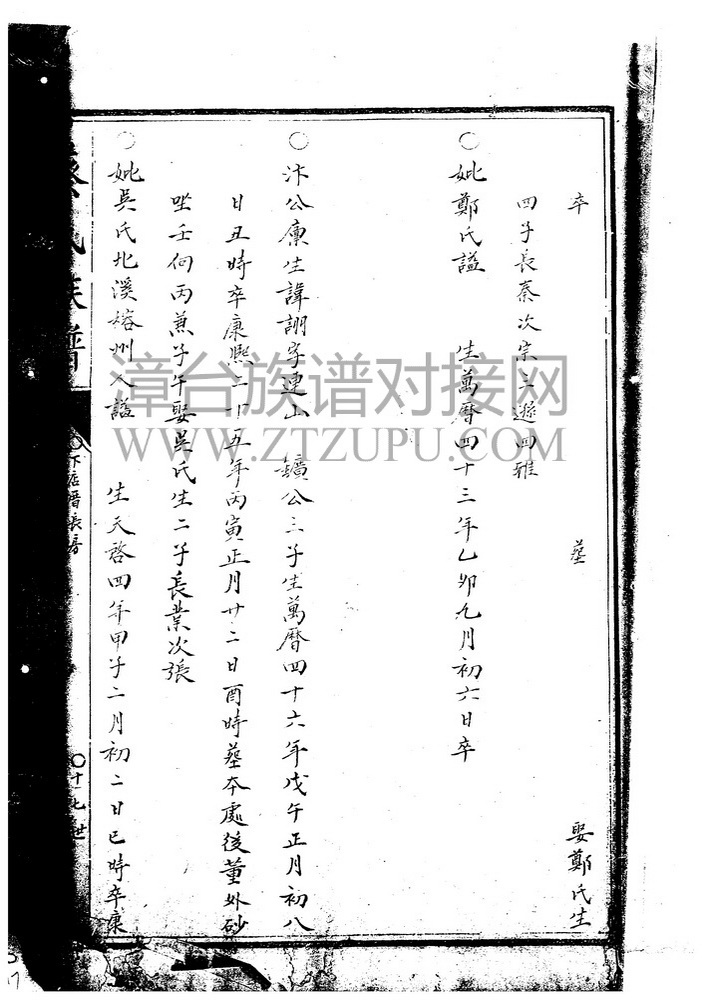 卒 葬 娶鄭氏生
四子長秦次宗三遜四雅
○妣鄭氏謚 生萬曆四十三年乙卯九月初六日卒
○汴公庠生諱詡字連山 鑛公三子生萬曆四十六年戊午正月初八
日丑時卒康熙二十五年丙寅正月廿二日酉時葬本處後董外砂
坐壬向丙兼子午娶吳氏生二子長業次張
○妣吳氏北溪 州人謚 生天啓四年甲子二月初二日巳時卒康
氏族譜
○下店厝長房
○十七世
漳台族谱对接网
WWW.ZTZUPU.COM